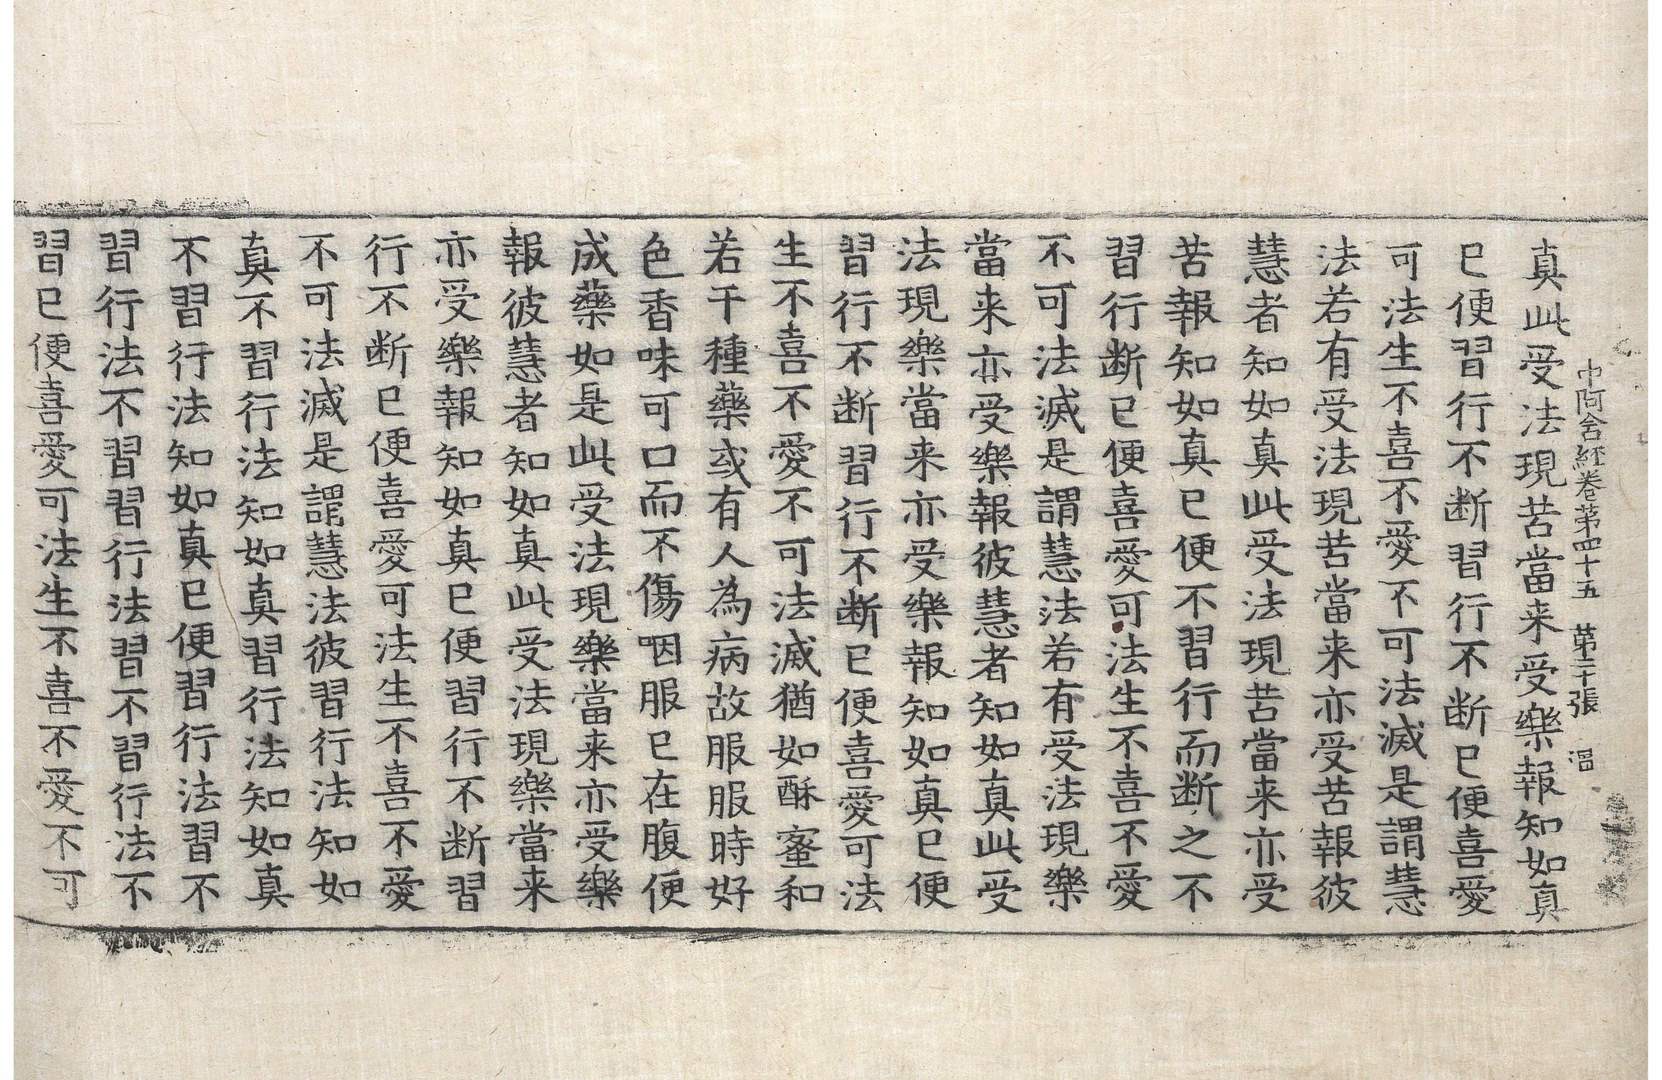 中阿含經卷第四十五 第二十張 溫
真此受法現苦當来受樂報知如真
已便習行不断習行不断已便喜愛
可法生不喜不愛不可法滅是謂慧
法若有受法現苦當来亦受苦報彼
慧者知如真此受法現苦當来亦受
苦報知如真已便不習行而断之不
習行断已便喜愛可法生不喜不愛
不可法滅是謂慧法若有受法現樂
當来亦受樂報彼慧者知如真此受
法現樂當来亦受樂報知如真已便
習行不断習行不断已便喜愛可法
生不喜不愛不可法滅猶如酥蜜和
若干種藥或有人為病故服服時好
色香味可口而不傷咽服已在腹便
成藥如是此受法現樂當来亦受樂
報彼慧者知如真此受法現樂當来
亦受樂報知如真已便習行不断習
行不断已便喜愛可法生不喜不愛
不可法滅是謂慧法彼習行法知如
真不習行法知如真習行法知如真
不習行法知如真已便習行法習不
習行法不習習行法習不習行法不
習已便喜愛可法生不喜不愛不可